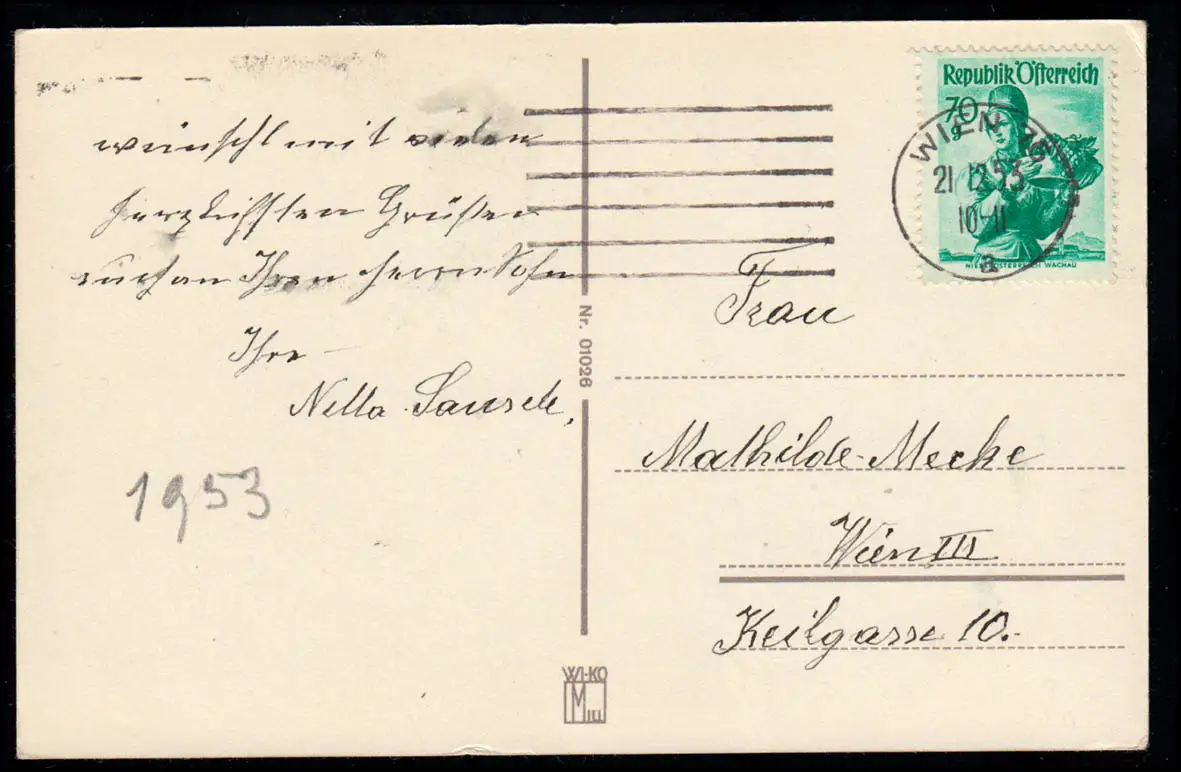 wünscht mit vielen
herzlichsten Grüßen
auch an Ihren Herrn Sohn
Ihre
Nella
1953
Nr. 01026
WI-KO
Republik Österreich
70
g
WIEN
21 12 53
10-11
a
NIEDERÖSTERREICH WACHAU
Frau
Mathilde Mecke
Wien III
Keilgasse 10.